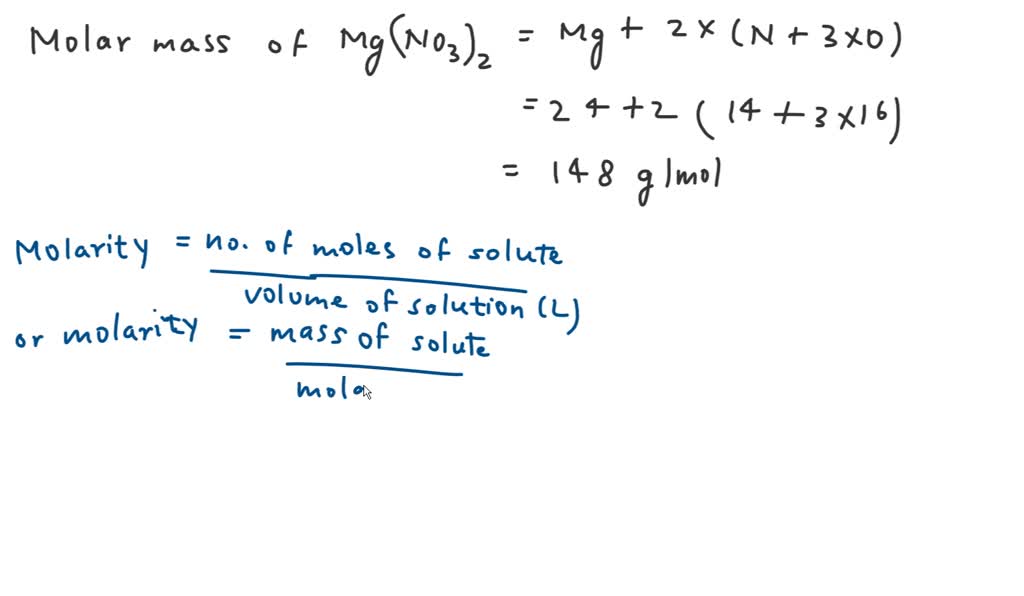 Molar mass of Mg(NO3)2 = Mg + 2 × (N + 3×O)
= 24 + 2 (14 + 3×16)
= 148 g/mol
Molarity = no. of moles of solute
volume of solution (L)
or molarity = mass of solute
mola